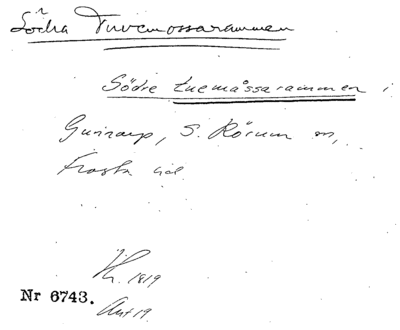 Södra Tuvemossarammen
Södre tuemåssarammen i
Gunnarp, S. Rörum sn,
Frosta hd.
1819
Nr 6743.
Akt 19.